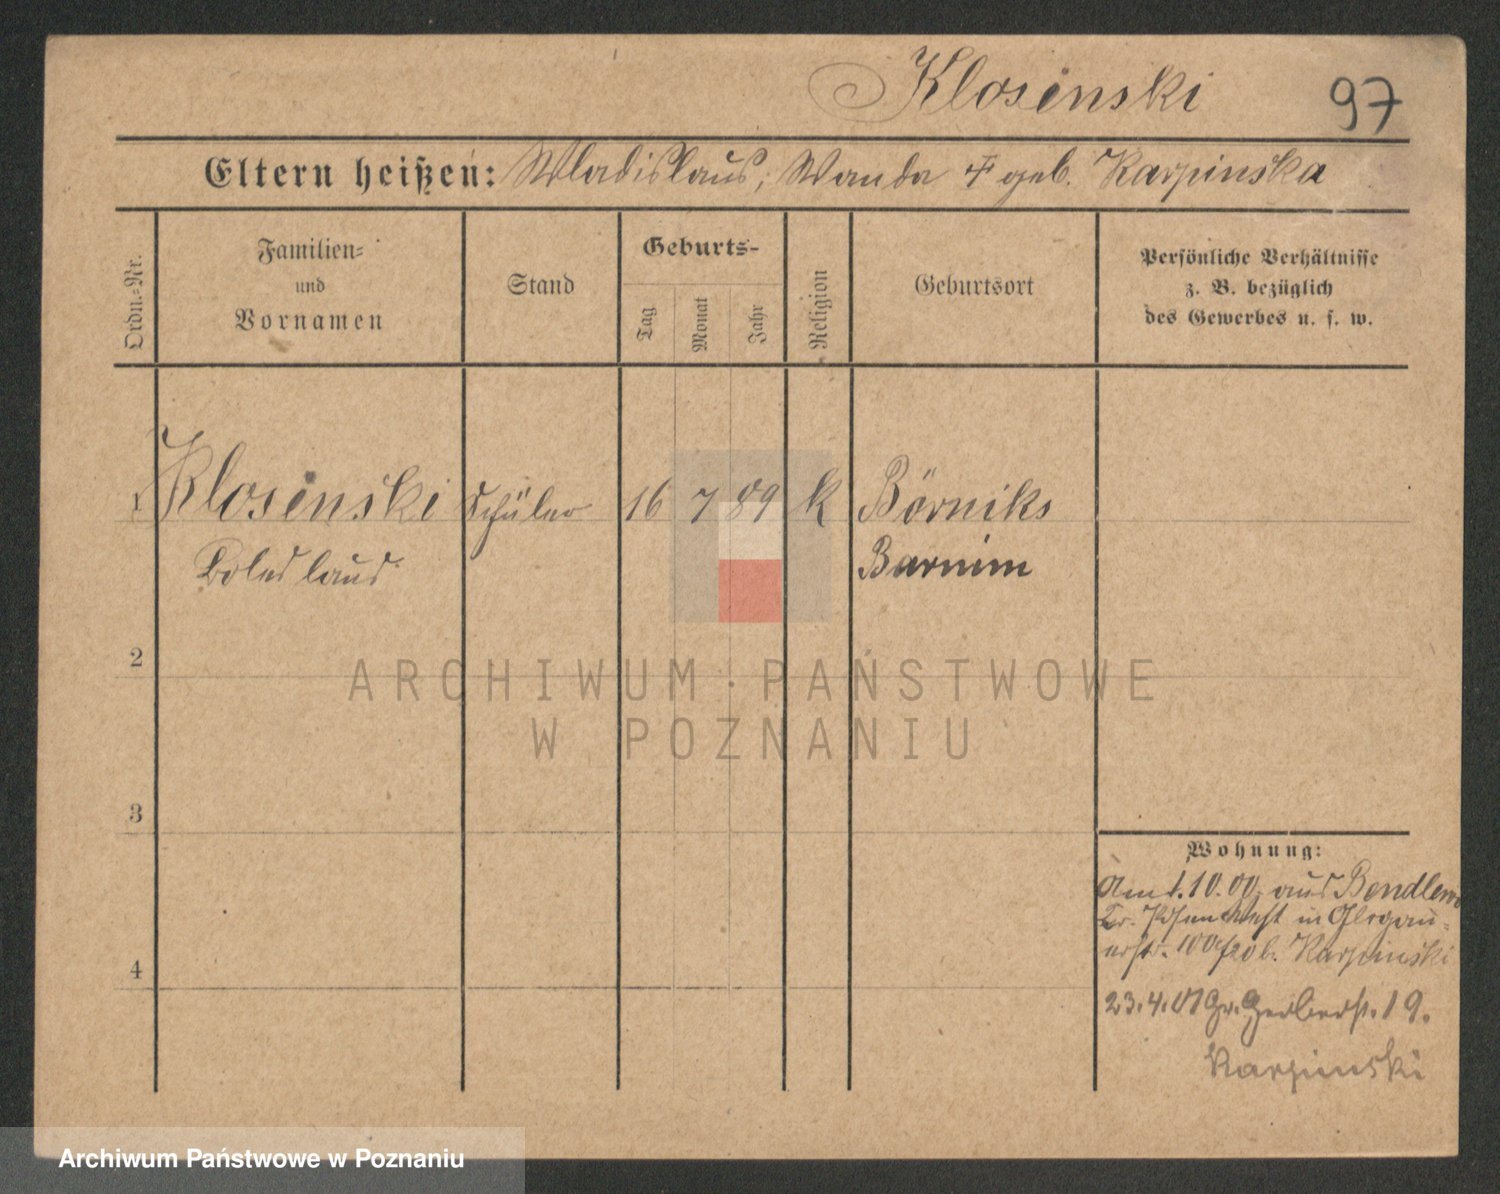 Klosinski
97
Eltern heißen: Wladislaus, Wanda geb. Karpinska
Ordn.=Nr.
Familien=
und
Vornamen
Stand
Geburts-
Tag
Monat
Jahr
Religion
Geburtsort
Persönliche Verhältnisse
z. B. bezüglich
des Gewerbes u. s. w.
1 Klosinski Schüler 16 7 89 k Börnike
Boleslaus Barnim
2
3
4
Wohnung:
Am 1.10.00. aus Bendlewo
Kr. Posen West in Glogau-
erstr. 100 Karpinski
23.4.01 Gr. Gerberstr. 19.
Karpinski
ARCHIWUM PAŃSTWOWE
W POZNANIU
Archiwum Państwowe w Poznaniu